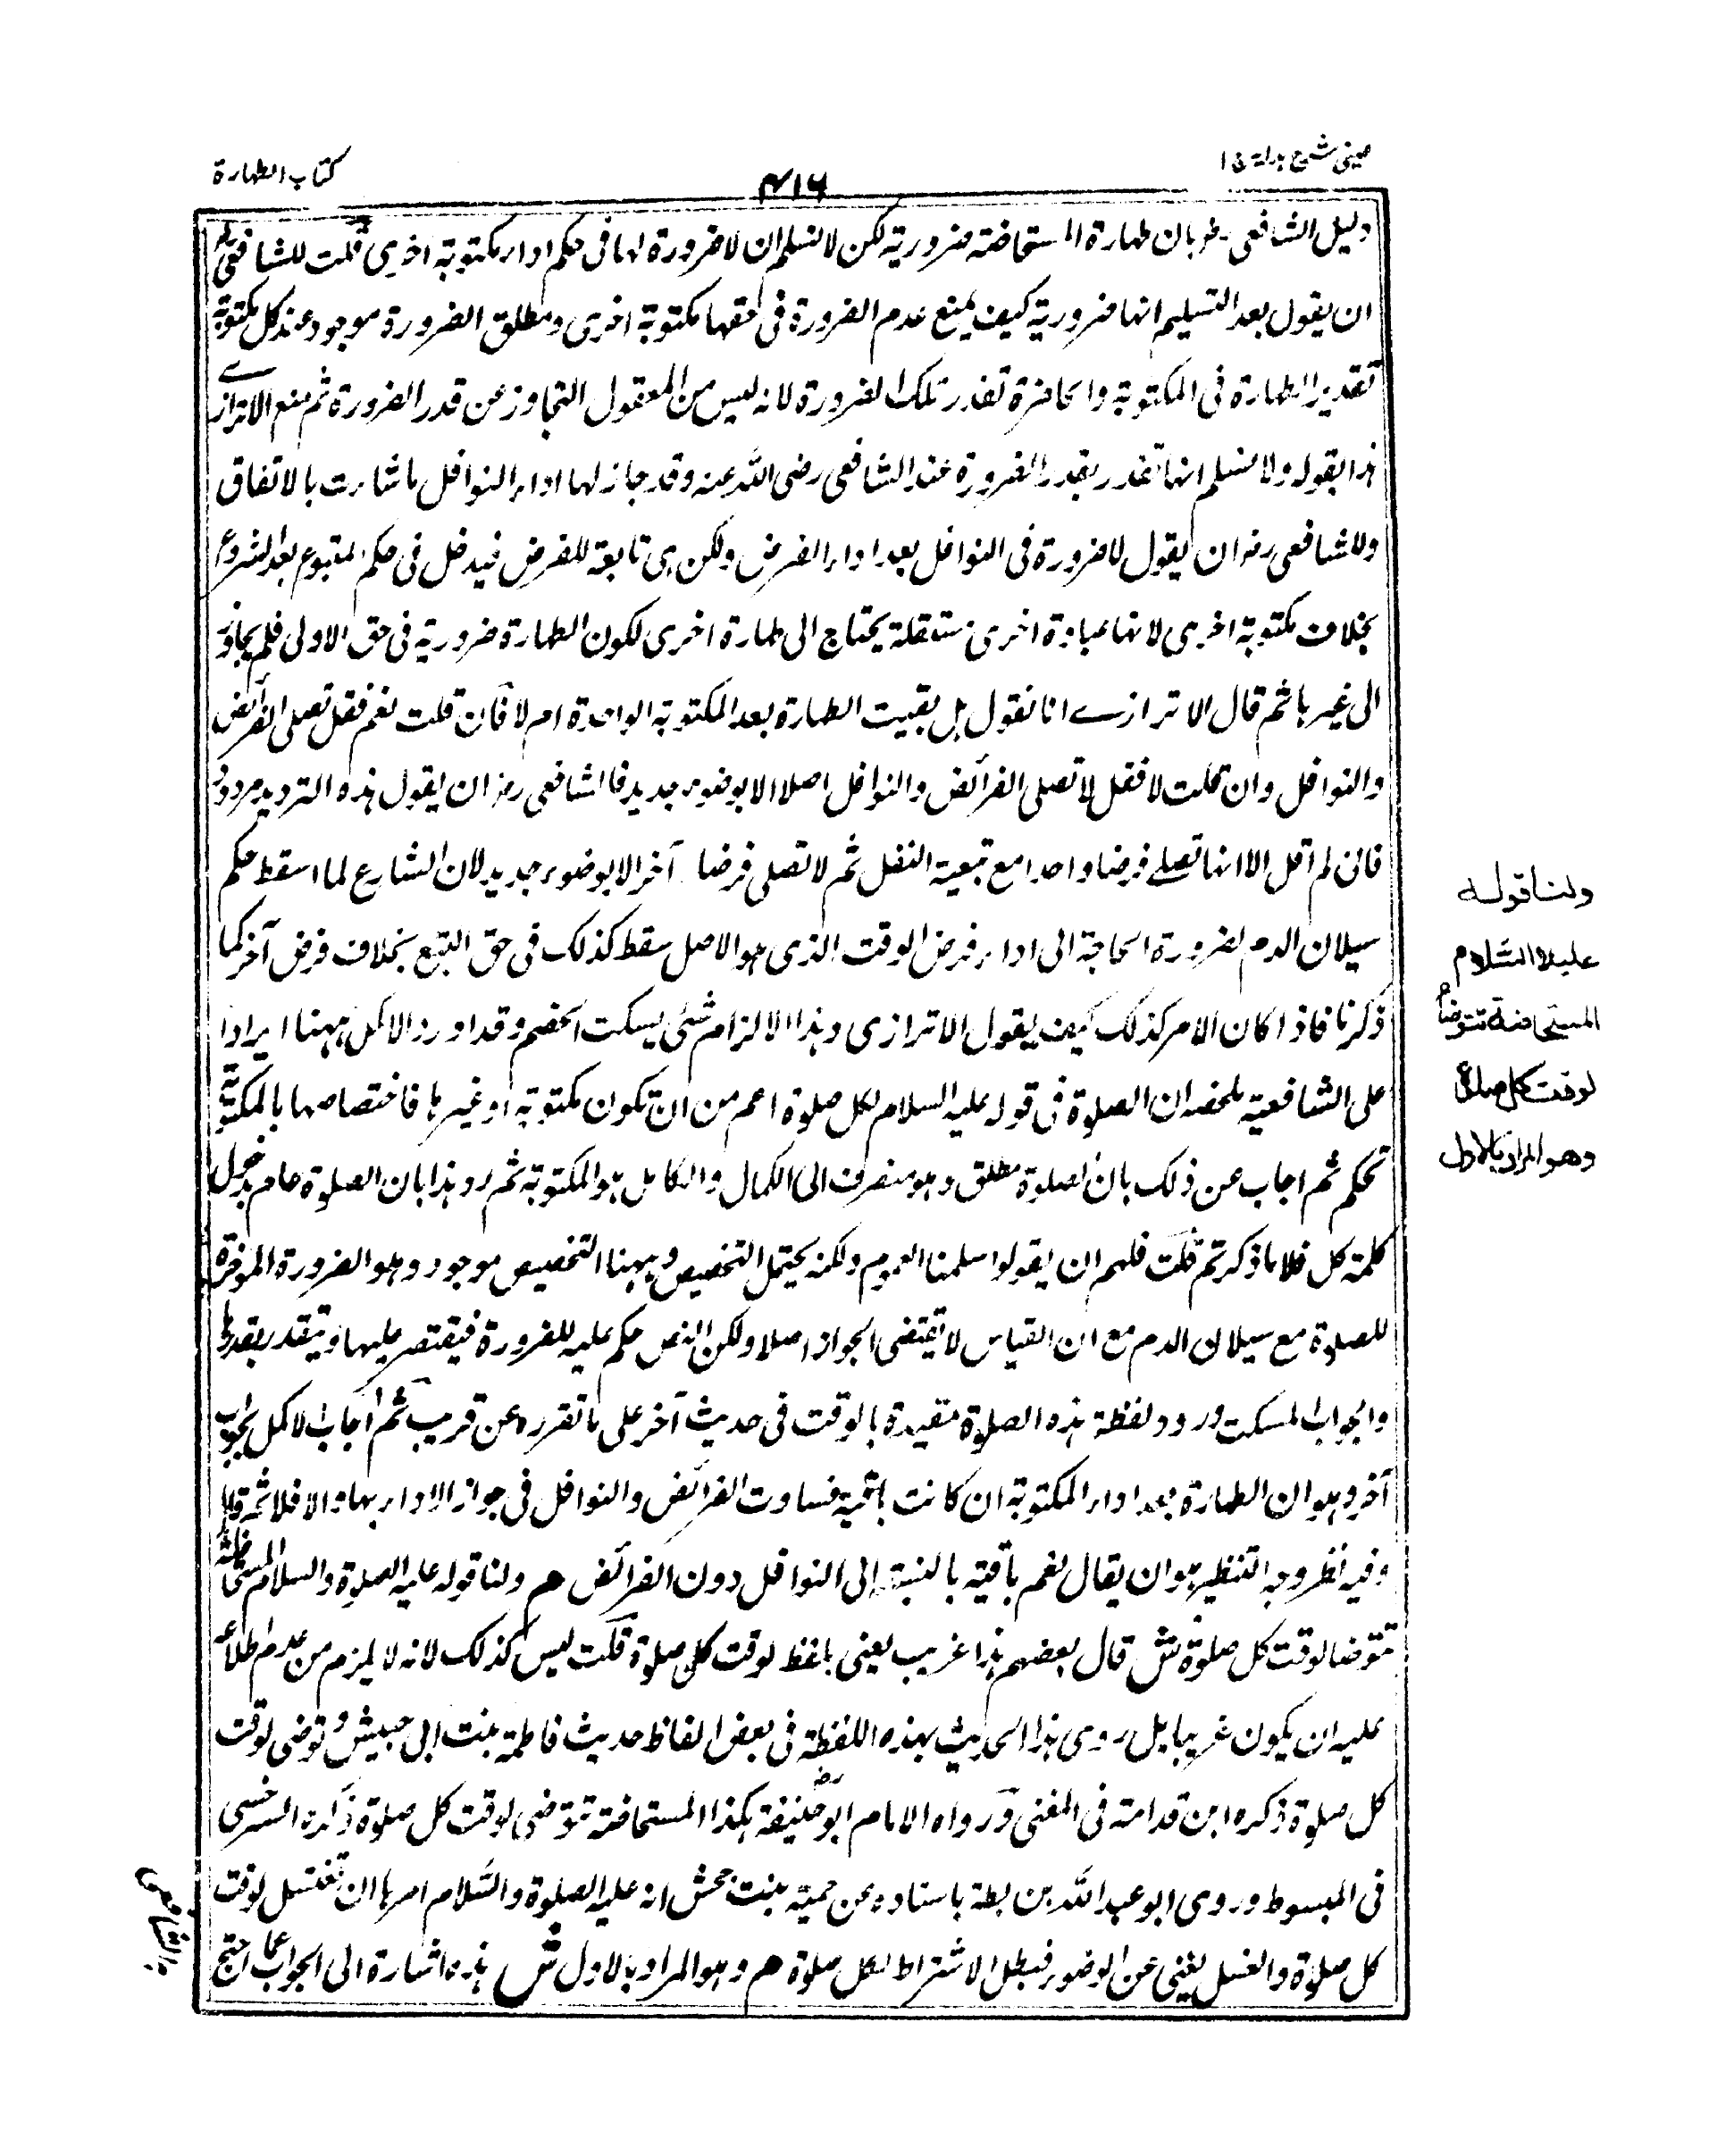 عينى شرح هداية ج ١
٤١٦
كتاب الطهارة
دليل الشافعى رض بان طهارة المستحاضة ضرورية لكن لا نسلم ان لا ضرورة لها فى حكم اداء مكتوبة اخرى قلت للشافعى رح
ان يقول بعد التسليم انها ضرورية كيف يمنع عدم الضرورة فى حقها مكتوبة اخرى ومطلق الضرورة موجود عند كل مكتوبة
تقدير الطهارة فى المكتوبة والحاضرة تقدر تلك الضرورة لانه ليس من المعقول التجاوز عن قدر الضرورة ثم منع الاترازى
هذا بقوله ولا نسلم انها تقدر بقدر الضرورة عند الشافعى رضى الله عنه وقد جاز لها اداء النوافل ما شاءت بالاتفاق
وللشافعى رض ان يقول لا ضرورة فى النوافل بعد اداء الفرض ولكن هى تابعة للفرض فيدخل فى حكم المتبوع بعد الشروع
بخلاف مكتوبة اخرى لانها عبادة اخرى مستقلة يحتاج الى طهارة اخرى لكون الطهارة ضرورية فى حق الاولى فلم يجاوز
الى غيرها ثم قال الاترازى انا نقول هل بقيت الطهارة بعد المكتوبة الواحدة ام لا فان قلت نعم فقل تصلى الفرائض
والنوافل وان قلت لا فقل لا تصلى الفرائض والنوافل اصلا الا بوضوء جديد فالشافعى رض ان يقول هذه الترديد مردود
فانى لم اقل الا انها تصلى فرضا واحدا مع تبعية النفل ثم لا تصلى فرضا آخر الا بوضوء جديد لان الشارع لما اسقط حكم
سيلان الدم لضرورة الحاجة الى اداء فرض الوقت الذى هو الاصل سقط كذلك فى حق التبع بخلاف فرض آخر كما
ذكرنا فاذا كان الامر كذلك كيف يقول الاترازى وهذا الالزام شئ يسكت الخصم وقد اورد الاكمل ههنا ايرادا
على الشافعية ملخصه ان الصلوة فى قوله عليه السلام لكل صلوة اعم من ان تكون مكتوبة او غيرها فاختصاصها بالمكتوبة
تحكم ثم اجاب عن ذلك بان الصلوة مطلق وهو منصرف الى الكمال والكامل هو المكتوبة ثم رد هذا بان الصلوة عام بدخول
كلمة كل فلا ما ذكرتم قلت فلهم ان يقولوا سلمنا العموم ولكنه يحتمل التخصيص وههنا التخصيص موجود وهو الضرورة المرخصة
للصلوة مع سيلان الدم مع ان القياس لا يقتضى الجواز اصلا ولكن النص حكم عليه للضرورة فيقتصر عليها ويتقدر بقدرها
والجواب المسكت ورود لفظة هذه الصلوة مقيدة بالوقت فى حديث آخر على ما تقرره عن قريب ثم اجاب الاكمل بجواب
آخر وهو ان الطهارة بعد اداء المكتوبة ان كانت باقية فساوت الفرائض والنوافل فى جواز الاداء بها والا فلا ثم قال
وفيه نظر وجه التنظير هو ان يقال نعم باقية بالنسبة الى النوافل دون الفرائض هم ولنا قوله عليه الصلوة والسلام المستحاضة
تتوضأ لوقت كل صلوة ش قال بعضهم هذا غريب يعنى بلفظ لوقت كل صلوة قلت ليس كذلك لانه لا يلزم من عدم اطلاعه
عليه ان يكون غريبا بل روى هذا الحديث بهذه اللفظة فى بعض الفاظ حديث فاطمة بنت ابى حبيش وتوضى لوقت
كل صلوة ذكره ابن قدامة فى المغنى ورواه الامام ابو حنيفة رض هكذا المستحاضة تتوضى لوقت كل صلوة ذكره السرخسى
فى المبسوط وروى ابو عبد الله بن بطة باسناده عن حمية بنت جحش انه عليه الصلوة والسلام امرها ان تغتسل لوقت
كل صلوة والغسل يغنى عن الوضوء فبطل الاشتراط لكل صلوة هم وهو المراد بالاول ش هذه اشارة الى الجواب عما احتج
ولنا قوله
عليه السلام
المستحاضة تتوضأ
لوقت كل صلاة
وهو المراد بالاول
به الشافعى